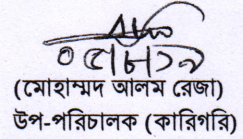 (মোহাম্মদ আলম রেজা)
উপ-পরিচালক (কারিগরি)